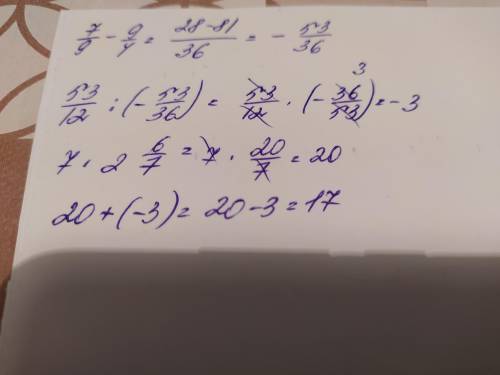 7/9 - 9/4 = 28-81/36 = - 53/36
53/12 : (- 53/36) = 53/12 · (- 36/53) = -3
3
7 · 2 6/7 = 7 · 20/7 = 20
20 + (-3) = 20 - 3 = 17